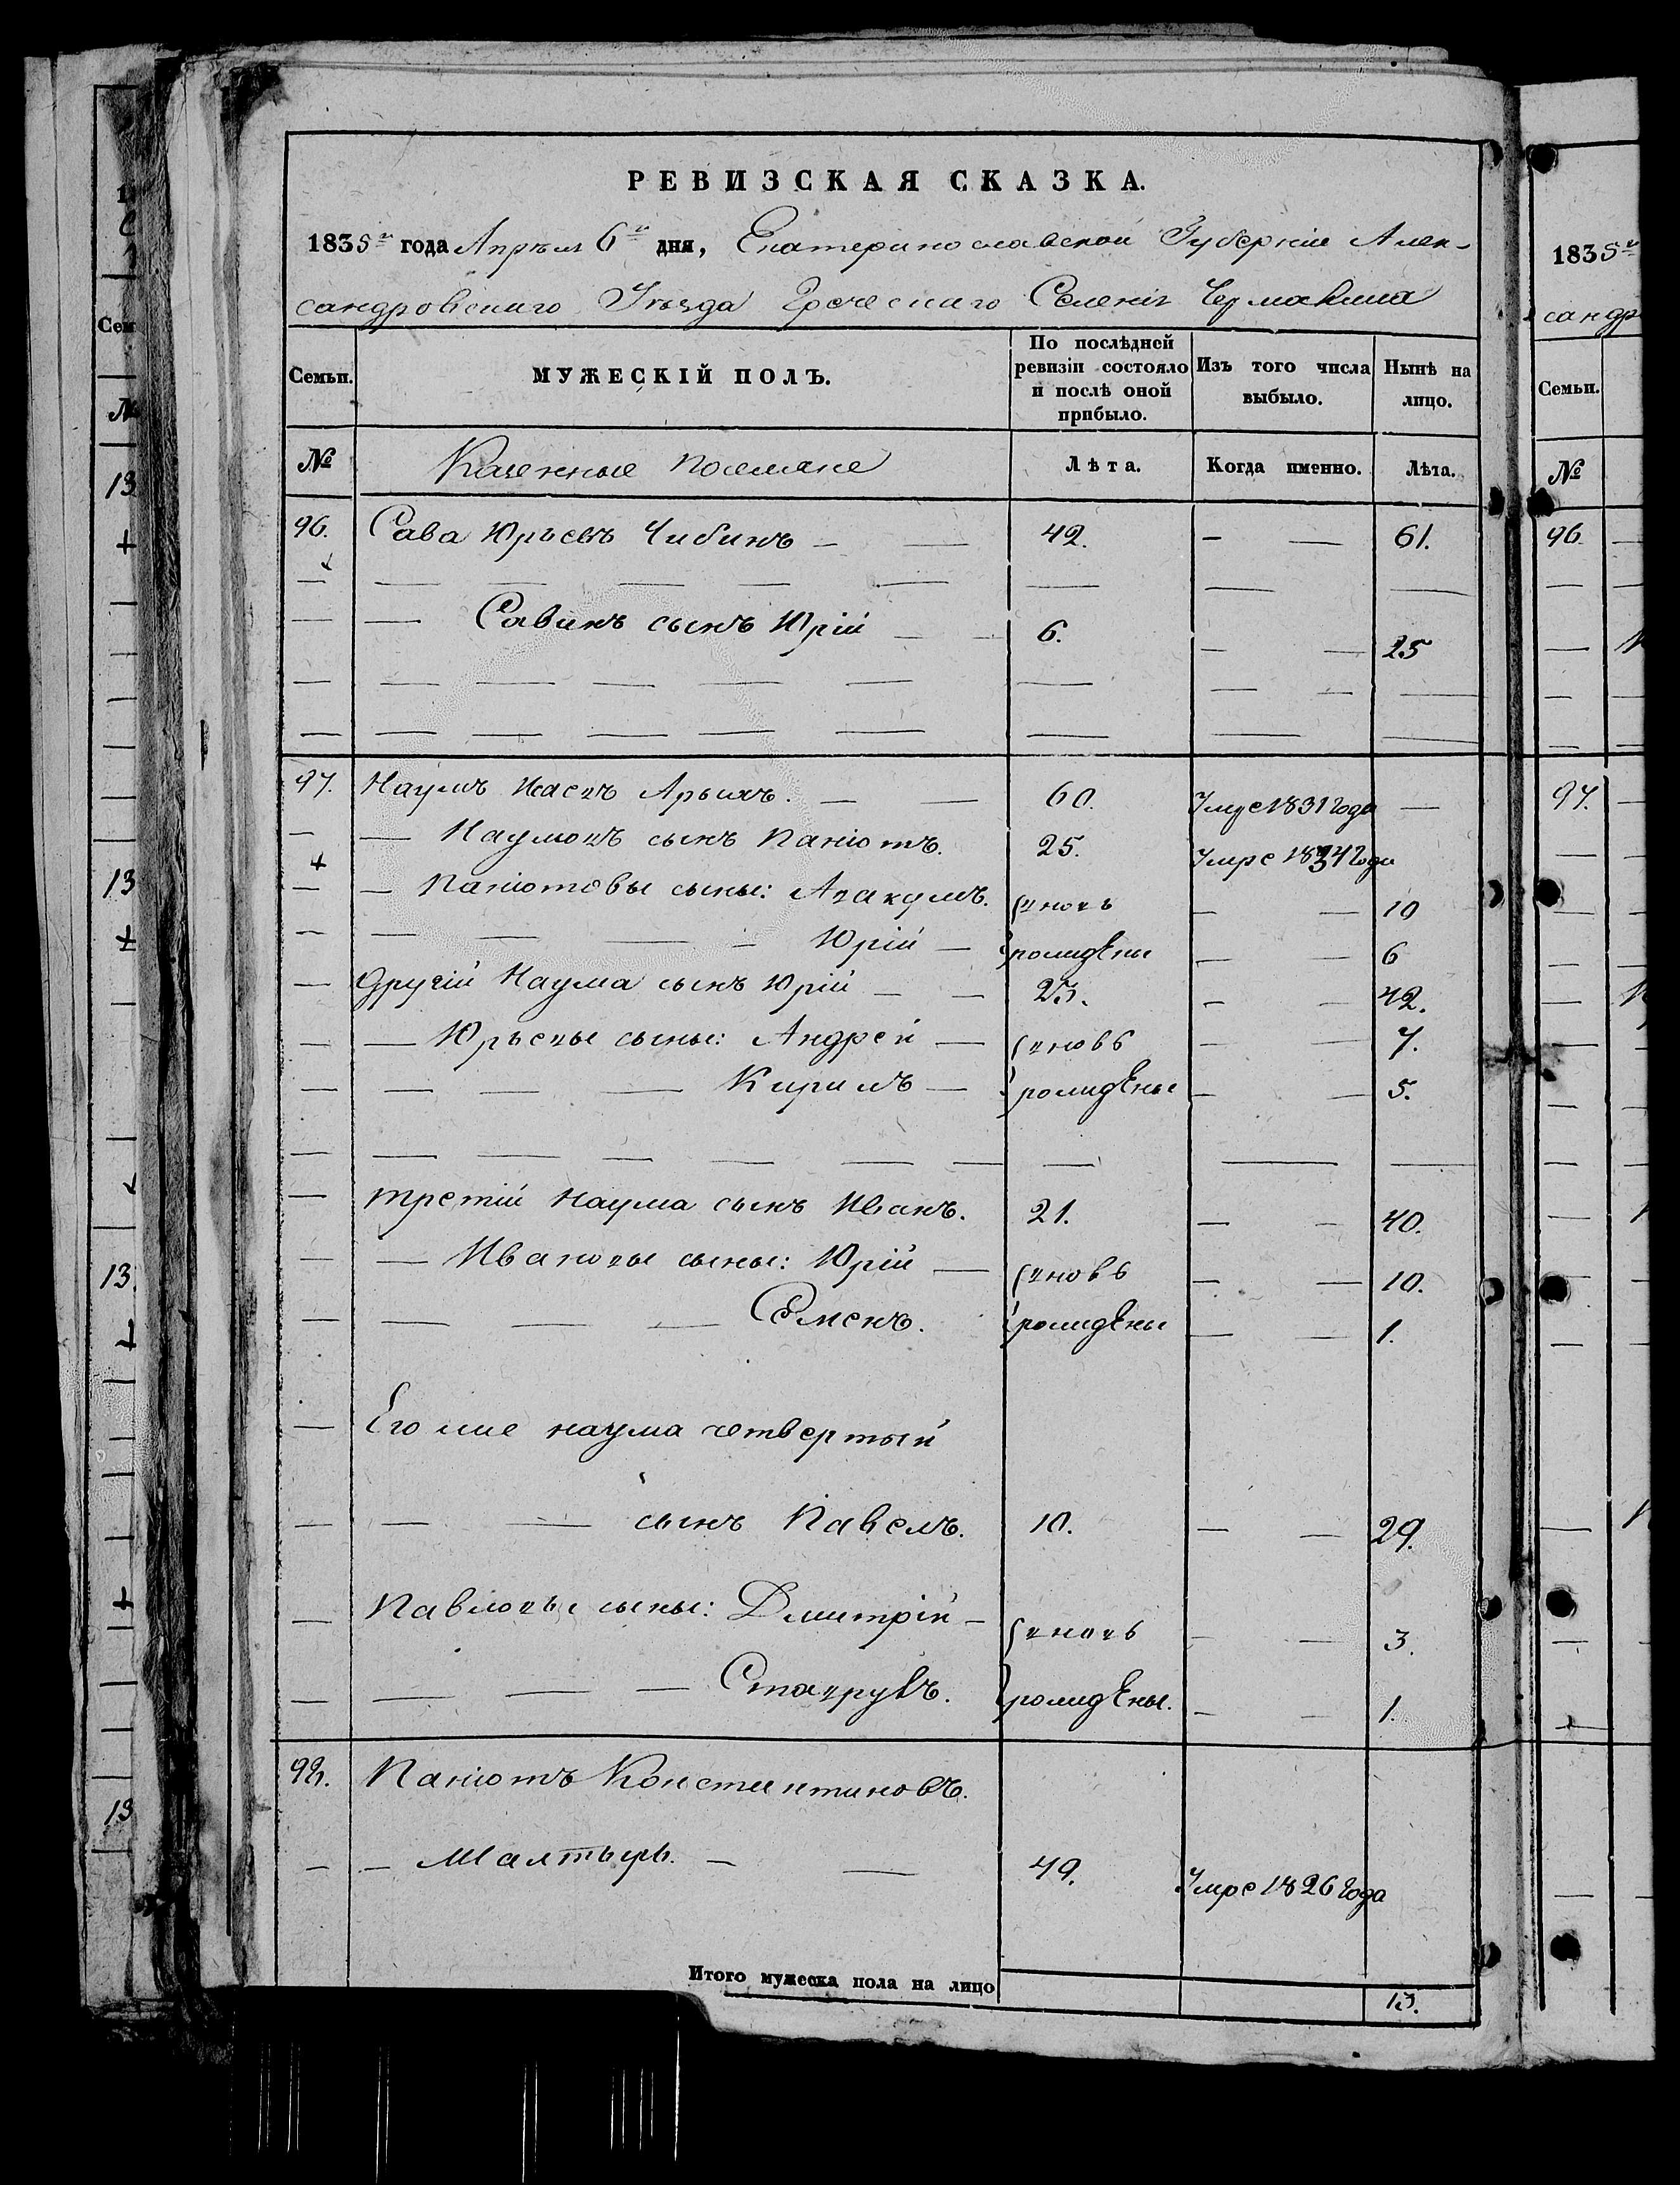 РЕВИЗСКАЯ СКАЗКА.
1835го года Апрѣля 6го дня, Екатеринославской Губерніи Алек-
сандровскаго Уѣзда Греческаго Селенія Чермалика
Семьи. МУЖЕСКІЙ ПОЛЪ. По послѣдней ревизіи состояло и послѣ оной прибыло. Изъ того числа выбыло. Нынѣ на лицо.
№ Казенные поселяне Лѣта. Когда именно. Лѣта.
96. Сава Юрьевъ Чибинъ — — 42. — — 61.
— Савинъ сынъ Юрій — — 6. — — 25
97. Наумъ Арыхъ. — — 60. Умре 1831 года —
— Наумовъ сынъ Паніотъ. 25. Умре года
— Паніотовы сыны: Авакумъ. вновь — — 10
— Юрій — рожденые — — 6
Другій Наума сынъ Юрій — — 23. — — 42.
— Юрьевы сыны: Андрей — вновь — — 7.
— Кирилъ — рожденые — — 5.
третій Наума сынъ Иванъ. 21. — — 40.
— Ивановы сыны: Юрій — вновь — — 10.
— Семенъ. рожденые — — 1.
Его же наума четвертый
— сынъ Павелъ. 10. — — 29.
Павловы сыны: Дмитрій — вновь — — 3.
— рожденые. — — 1.
98. Паніотъ Константиновъ.
— 49. Умре 1826 года
Итого мужеска пола на лицо 13.
1835го
сандр
Семьи.
№
96.
97.
Сем
№
13
13
13
13